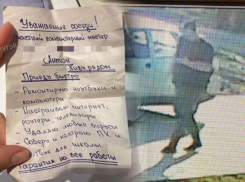 Уважаемые соседи!
частный компьютерный мастер
Антон
Живу рядом
Приеду быстро
- Ремонтирую ноутбуки и
компьютеры
- Настраиваю интернет,
роутеры, телевизоры
- Удаляю любые вирусы
- Соберу и настрою ПК и
для школы
Гарантия на все работы